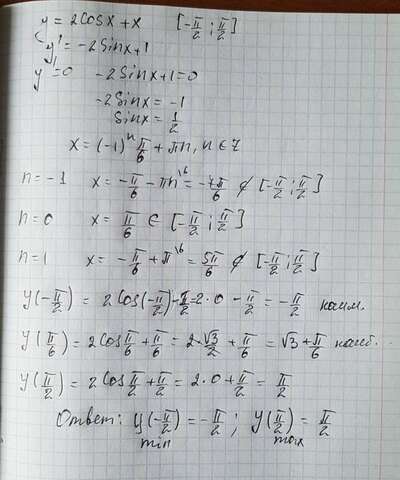 y = 2cosx + x [-π/2 ; π/2]
y' = -2sinx + 1
y' = 0 -2sinx + 1 = 0
-2sinx = -1
sinx = 1/2
x = (-1)ⁿ π/6 + πn, n ∈ Z
n = -1 x = -π/6 - πn\⁶ = -7π/6 ∉ [-π/2 ; π/2]
n = 0 x = π/6 ∈ [-π/2 ; π/2]
n = 1 x = -π/6 + π\⁶ = 5π/6 ∉ [-π/2 ; π/2]
y(-π/2) = 2cos(-π/2) - π/2 = 2·0 - π/2 = -π/2 наим.
y(π/6) = 2cos π/6 + π/6 = 2·√3/2 + π/6 = √3 + π/6 наиб.
y(π/2) = 2cos π/2 + π/2 = 2·0 + π/2 = π/2
Ответ: y(-π/2) = -π/2 ; y(π/2) = π/2
min max